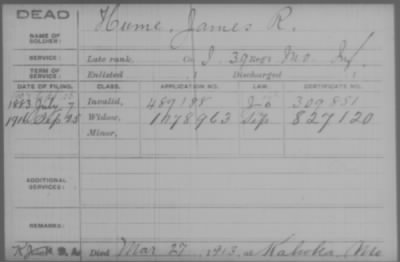 DEAD
NAME OF SOLDIER: Hume, James R.
SERVICE: Late rank, Co. I, 39 Regt. Mo. Inf.
TERM OF SERVICE: Enlisted , 1 Discharged , 1
DATE OF FILING. CLASS. APPLICATION NO. LAW. CERTIFICATE NO.
1883 July 7 Invalid, 487198 309851
Sep 25 Widow, 1078963 827120
Minor,
ADDITIONAL SERVICES:
REMARKS:
Died Mar 27, 1913, at Kahoka, Mo